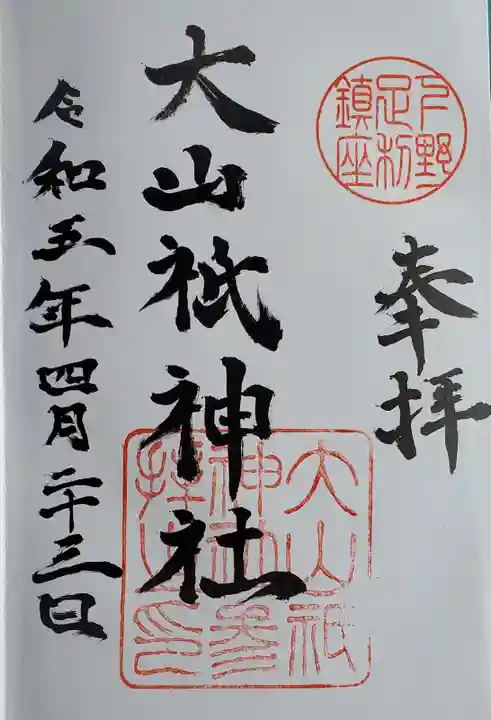 奉拝
下野
足利
鎮座
大山祇神社
大山祇
神社参
拝之印
令和五年四月二十三日